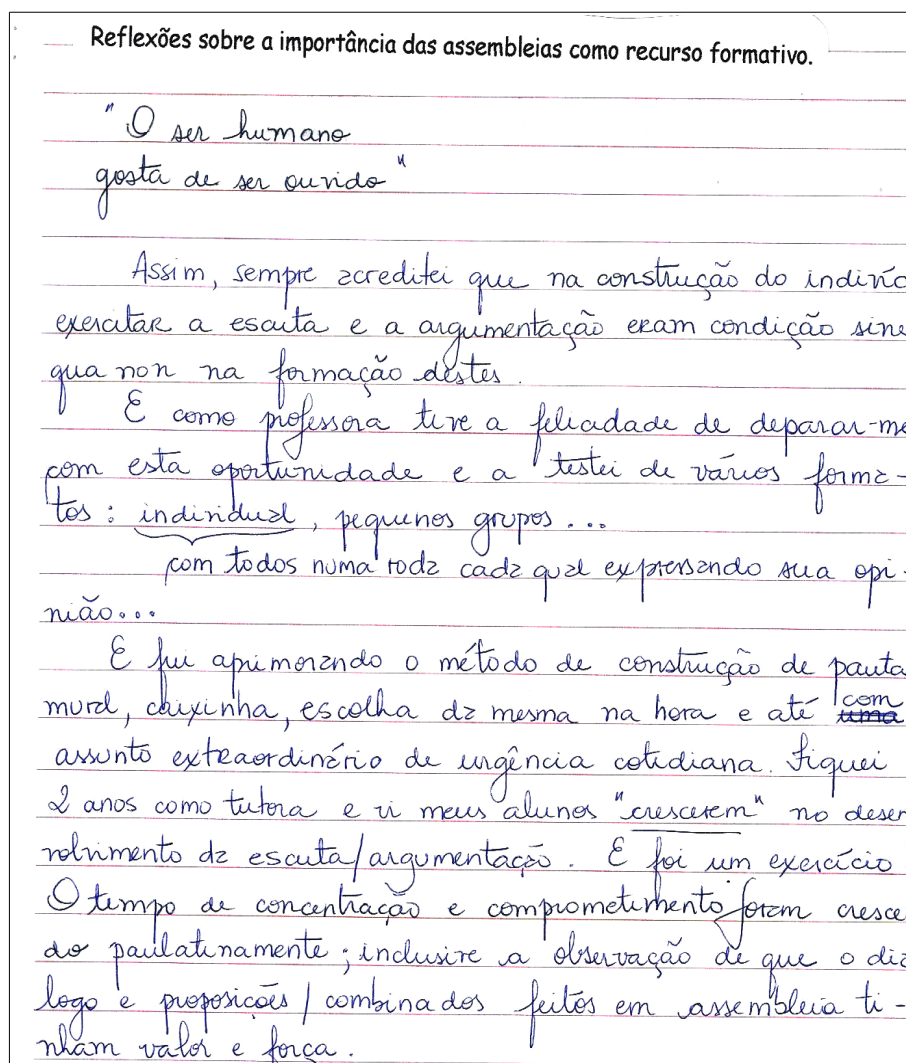 Reflexões sobre a importância das assembleias como recurso formativo.
"O ser humano
gosta de ser ouvido"
Assim, sempre acreditei que na construção do indivíd
exercitar a escuta e a argumentação eram condição sine
qua non na formação destes.
E como professora tive a felicadade de deparar-me
com esta oportunidade e a testei de vários forma-
tos: individual, pequenos grupos...
com todos numa roda cada qual expressando sua opi-
nião...
E fui aprimorando o método de construção de pauta
mural, caixinha, escolha da mesma na hora e até com
assunto extraordinário de urgência cotidiana. Fiquei
2 anos como tutora e vi meus alunos "crescerem" no desen
volvimento da escuta/argumentação. E foi um exercício
O tempo de concentração e comprometimento foram crescen
do paulatinamente; inclusive a observação de que o diá
logo e proposições/combinados feitos em assembleia ti-
nham valor e força.